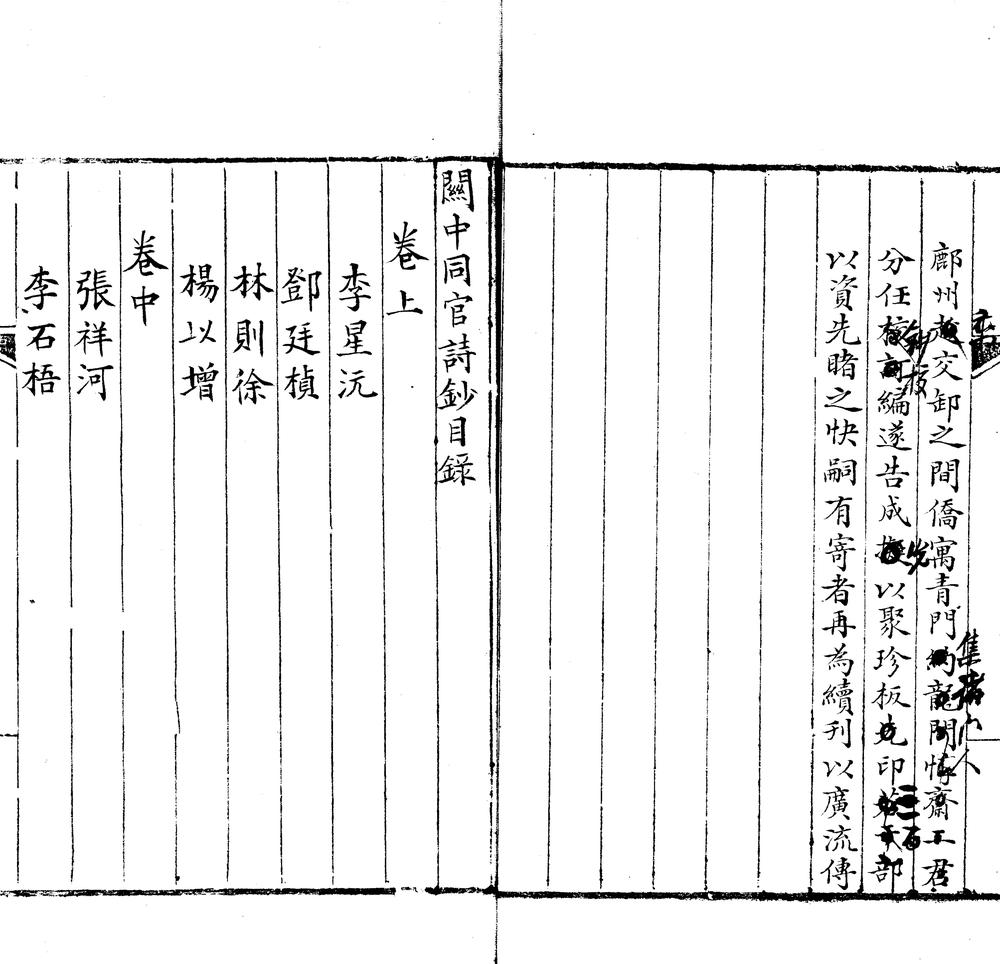 鄜州交卸之間僑寓青門龍門齋君
集諸門人
分任編遂告成以聚珍板印部
先
三百
以資先睹之快嗣有寄者再為續刊以廣流傳
關中同官詩鈔目錄
卷上
李星沅
鄧廷楨
林則徐
楊以增
卷中
張祥河
李石梧